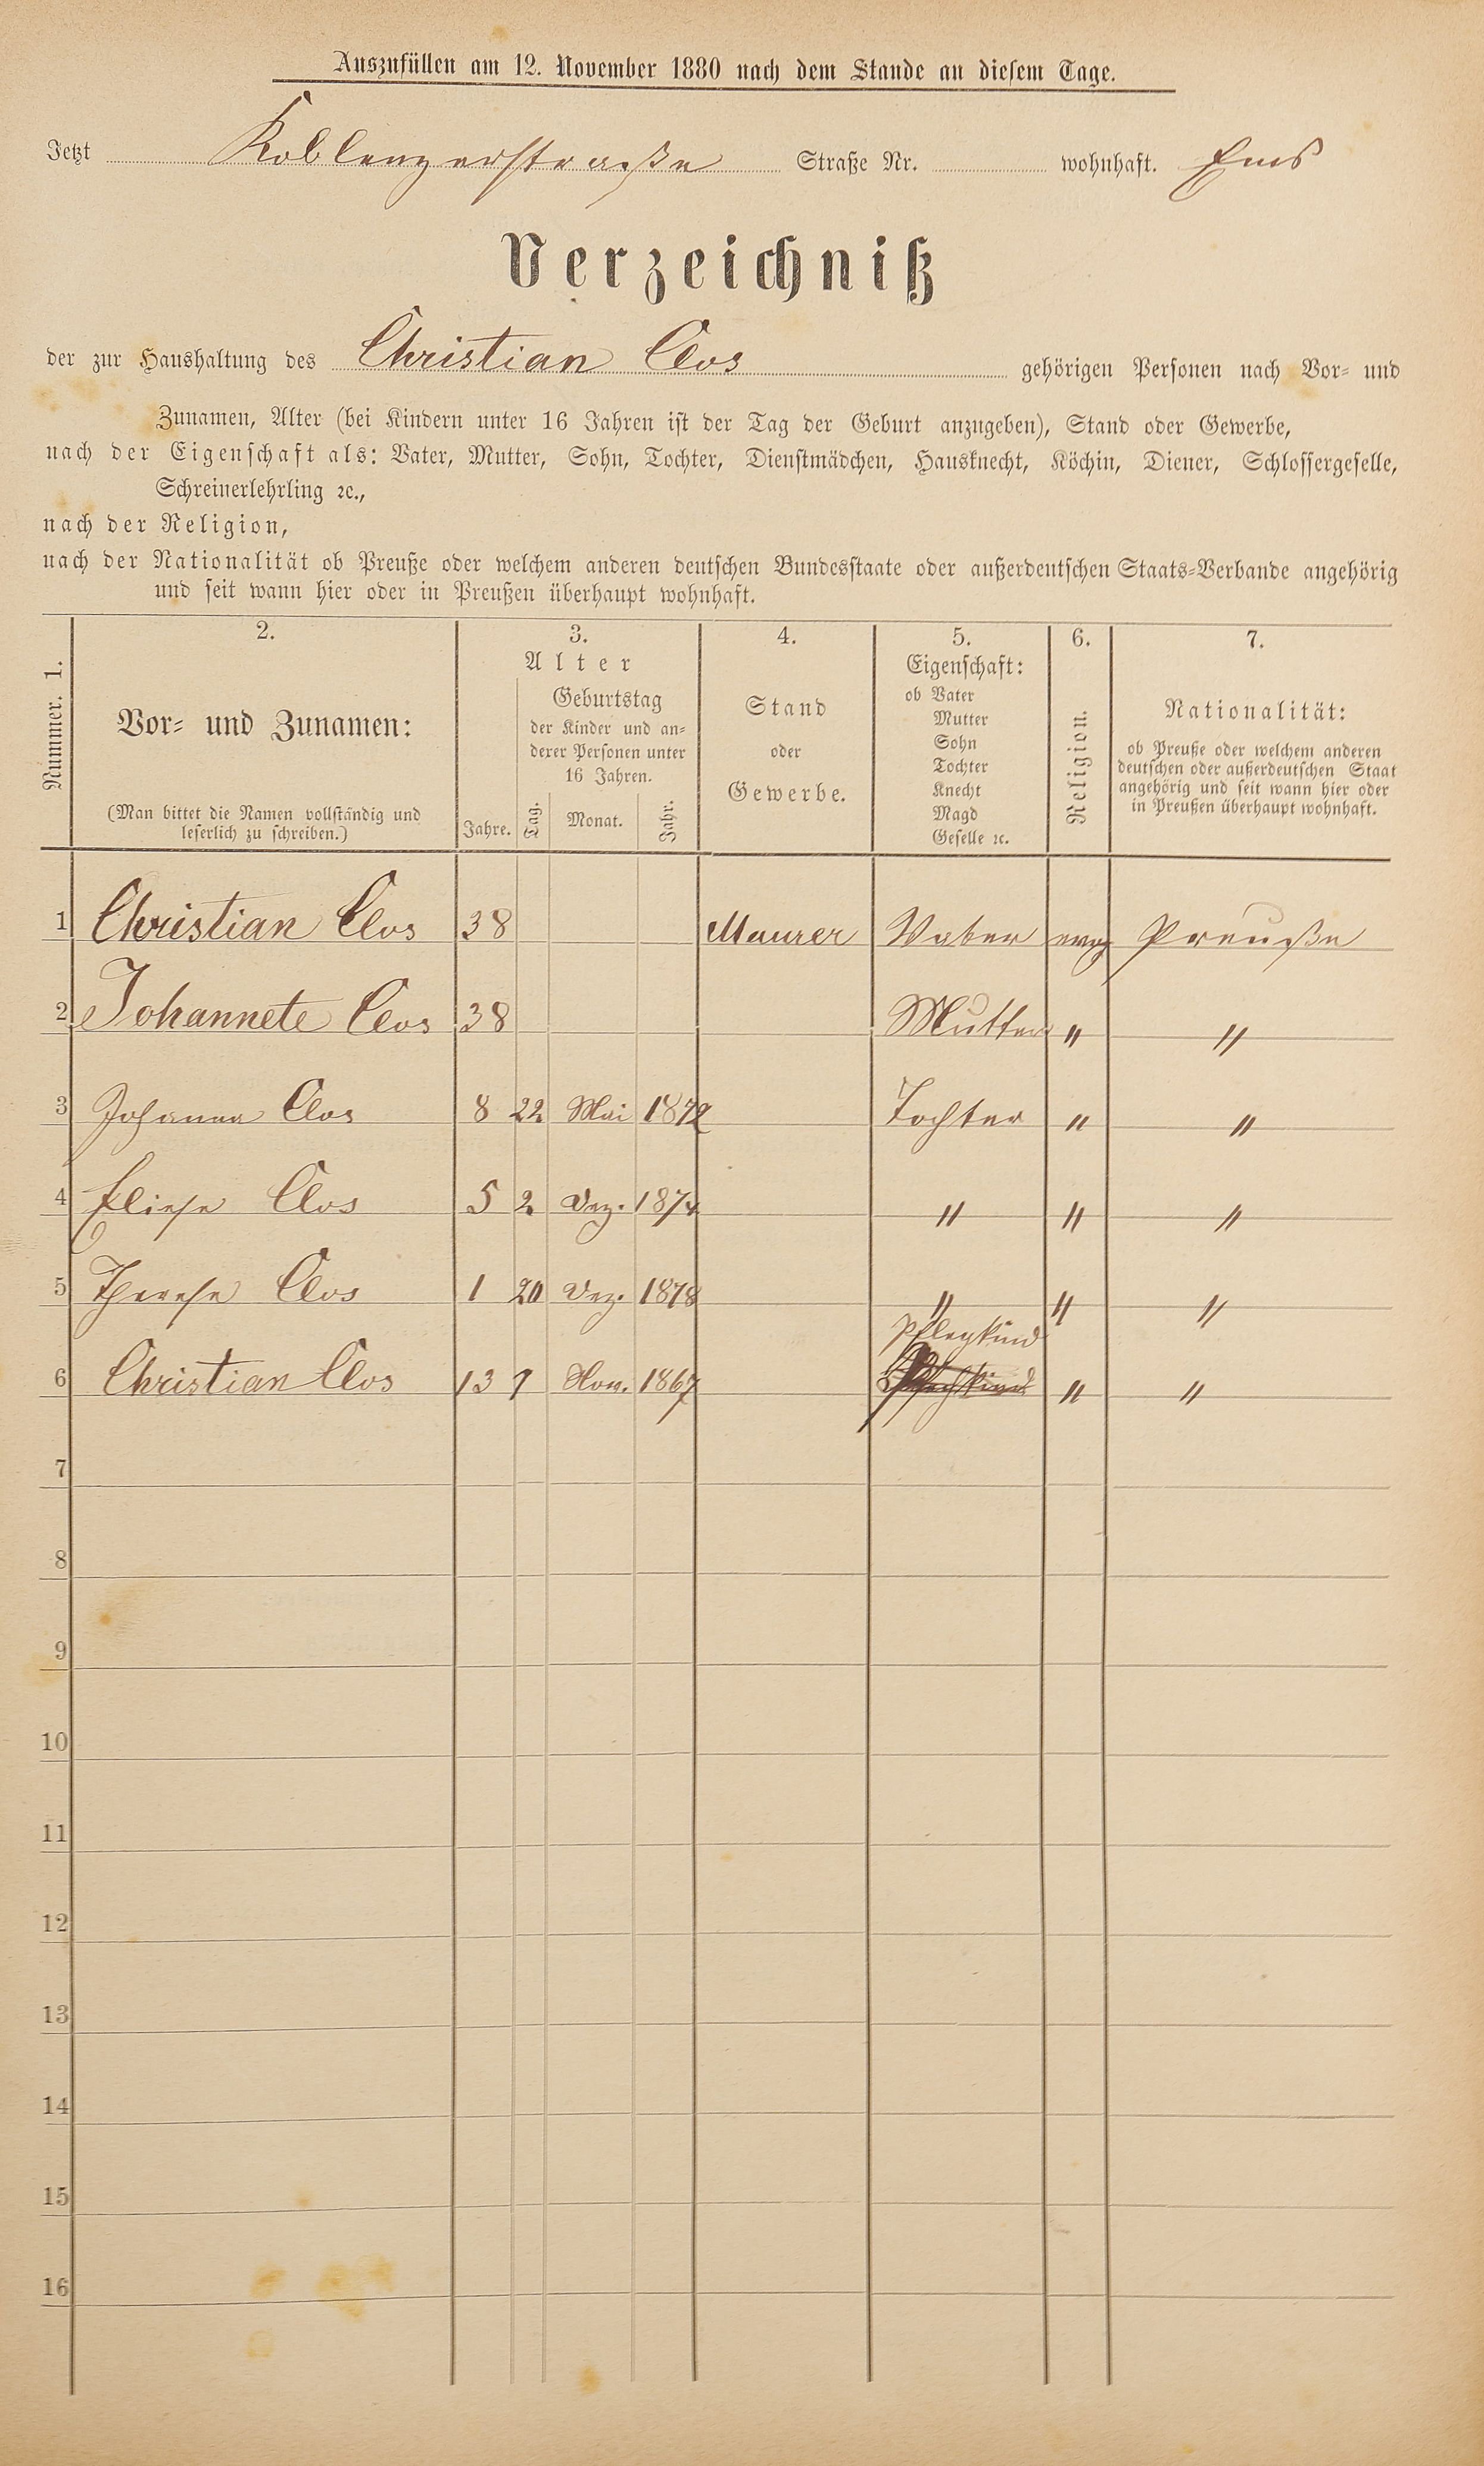 Auszufüllen am 12. November 1880 nach dem Stande an diesem Tage.
Jetzt Koblenzerstraße Straße Nr. wohnhaft. Ems
Verzeichniß
der zur Haushaltung des Christian Clos gehörigen Personen nach Vor- und
Zunamen, Alter (bei Kindern unter 16 Jahren ist der Tag der Geburt anzugeben), Stand oder Gewerbe,
nach der Eigenschaft als: Vater, Mutter, Sohn, Tochter, Dienstmädchen, Hausknecht, Köchin, Diener, Schlossergeselle,
Schreinerlehrling ꝛc.,
nach der Religion,
nach der Nationalität ob Preuße oder welchem anderen deutschen Bundesstaate oder außerdeutschen Staats-Verbande angehörig
und seit wann hier oder in Preußen überhaupt wohnhaft.
Nummer. 1.
2.
Vor- und Zunamen:
(Man bittet die Namen vollständig und
leserlich zu schreiben.)
3.
Alter
Jahre.
Geburtstag
der Kinder und an-
derer Personen unter
16 Jahren.
Tag. Monat. Jahr.
4.
Stand
oder
Gewerbe.
5.
Eigenschaft:
ob Vater
Mutter
Sohn
Tochter
Knecht
Magd
Geselle ꝛc.
6.
Religion.
7.
Nationalität:
ob Preuße oder welchem anderen
deutschen oder außerdeutschen Staat
angehörig und seit wann hier oder
in Preußen überhaupt wohnhaft.
1 Christian Clos 38 Maurer Vater evag Preuße
2 Johannete Clos 38 Mutter " "
3 Johanna Clos 8 22 Mai 1872 Tochter " "
4 Eliese Clos 5 2 Dez. 1874 " " "
5 Therese Clos 1 20 Dez. 1878 " " "
Pflegkind
6 Christian Clos 13 7 Nov. 1867 " "
7
8
9
10
11
12
13
14
15
16